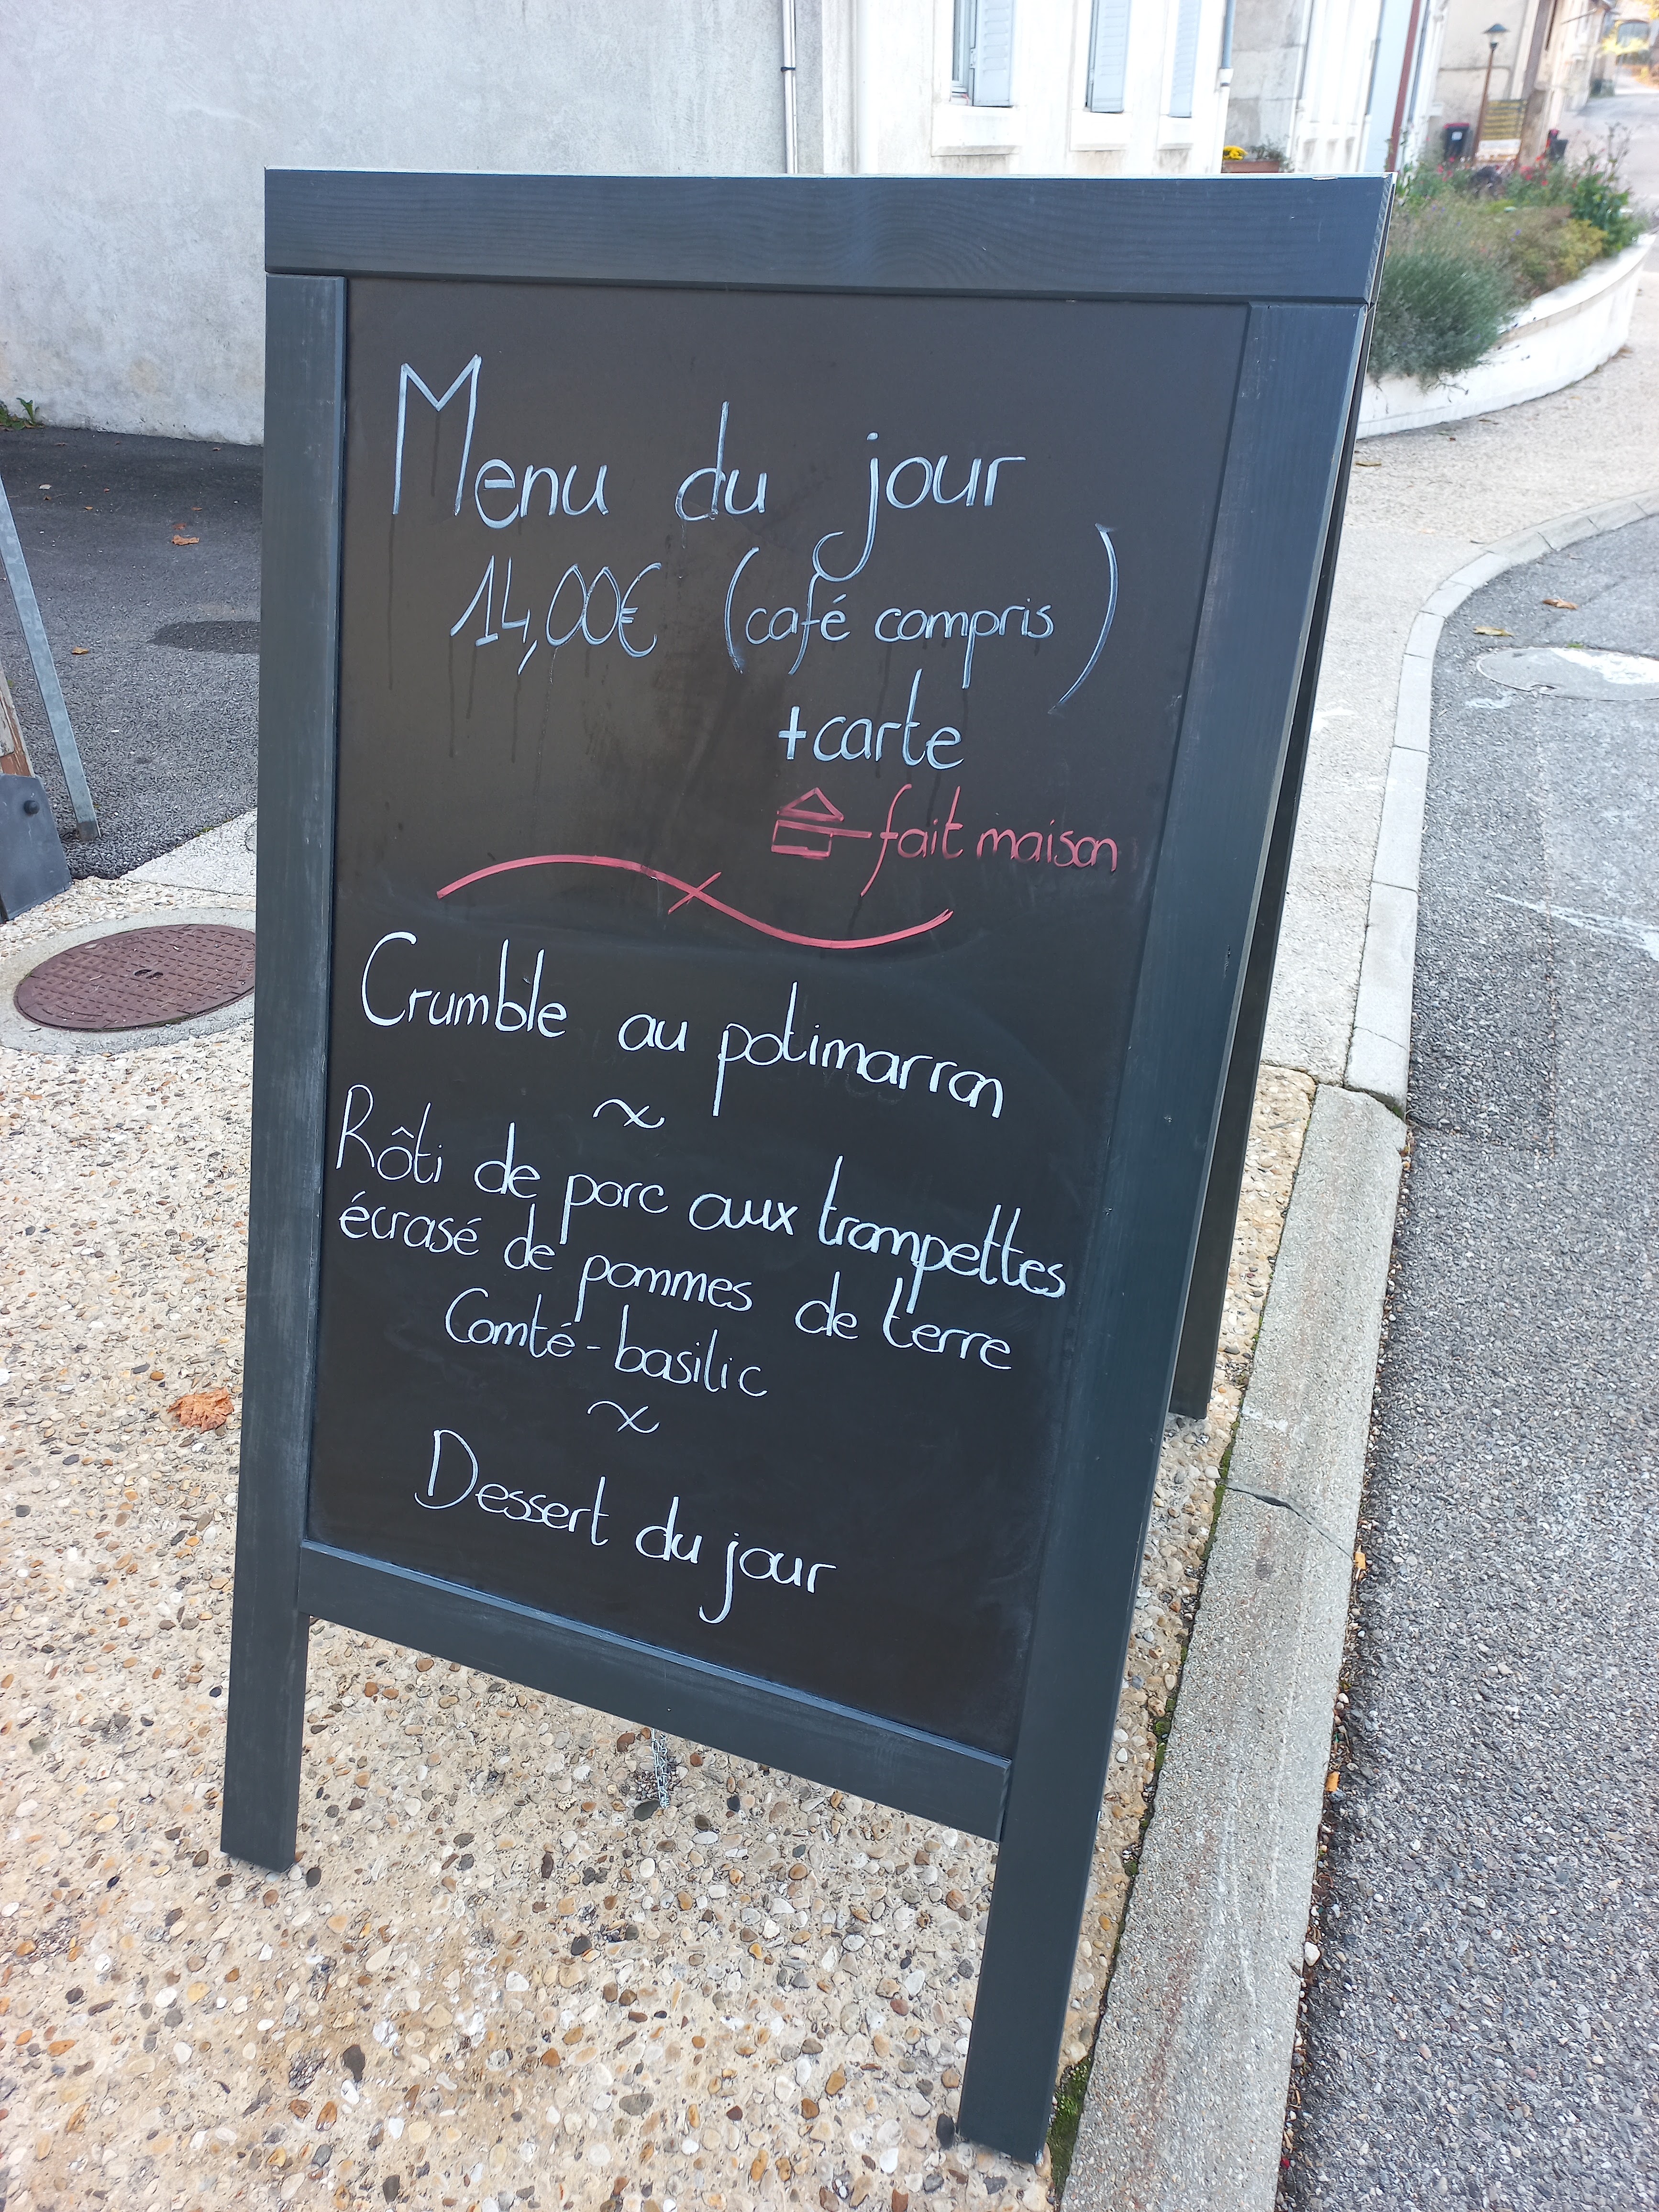 Menu du jour
14,00€ (café compris)
+carte
fait maison
Crumble au potimarron
Rôti de porc aux trompettes
écrasé de pommes de terre
Comté-basilic
Dessert du jour